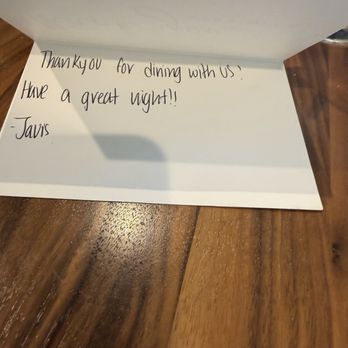 Thankyou for dining with us!
Have a great night!!
-Javis